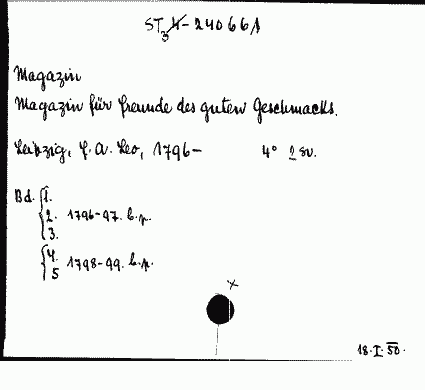 ST 3 4-24066A
Magazin
Magazin für Freunde des guten Geschmacks.
Leipzig, F. A. Leo, 1796- 4° 2 sv.
Bd. 1.
2. 1796-97. b.p.
3.
4. 1798-99. b.p.
5
x
18.I.50.